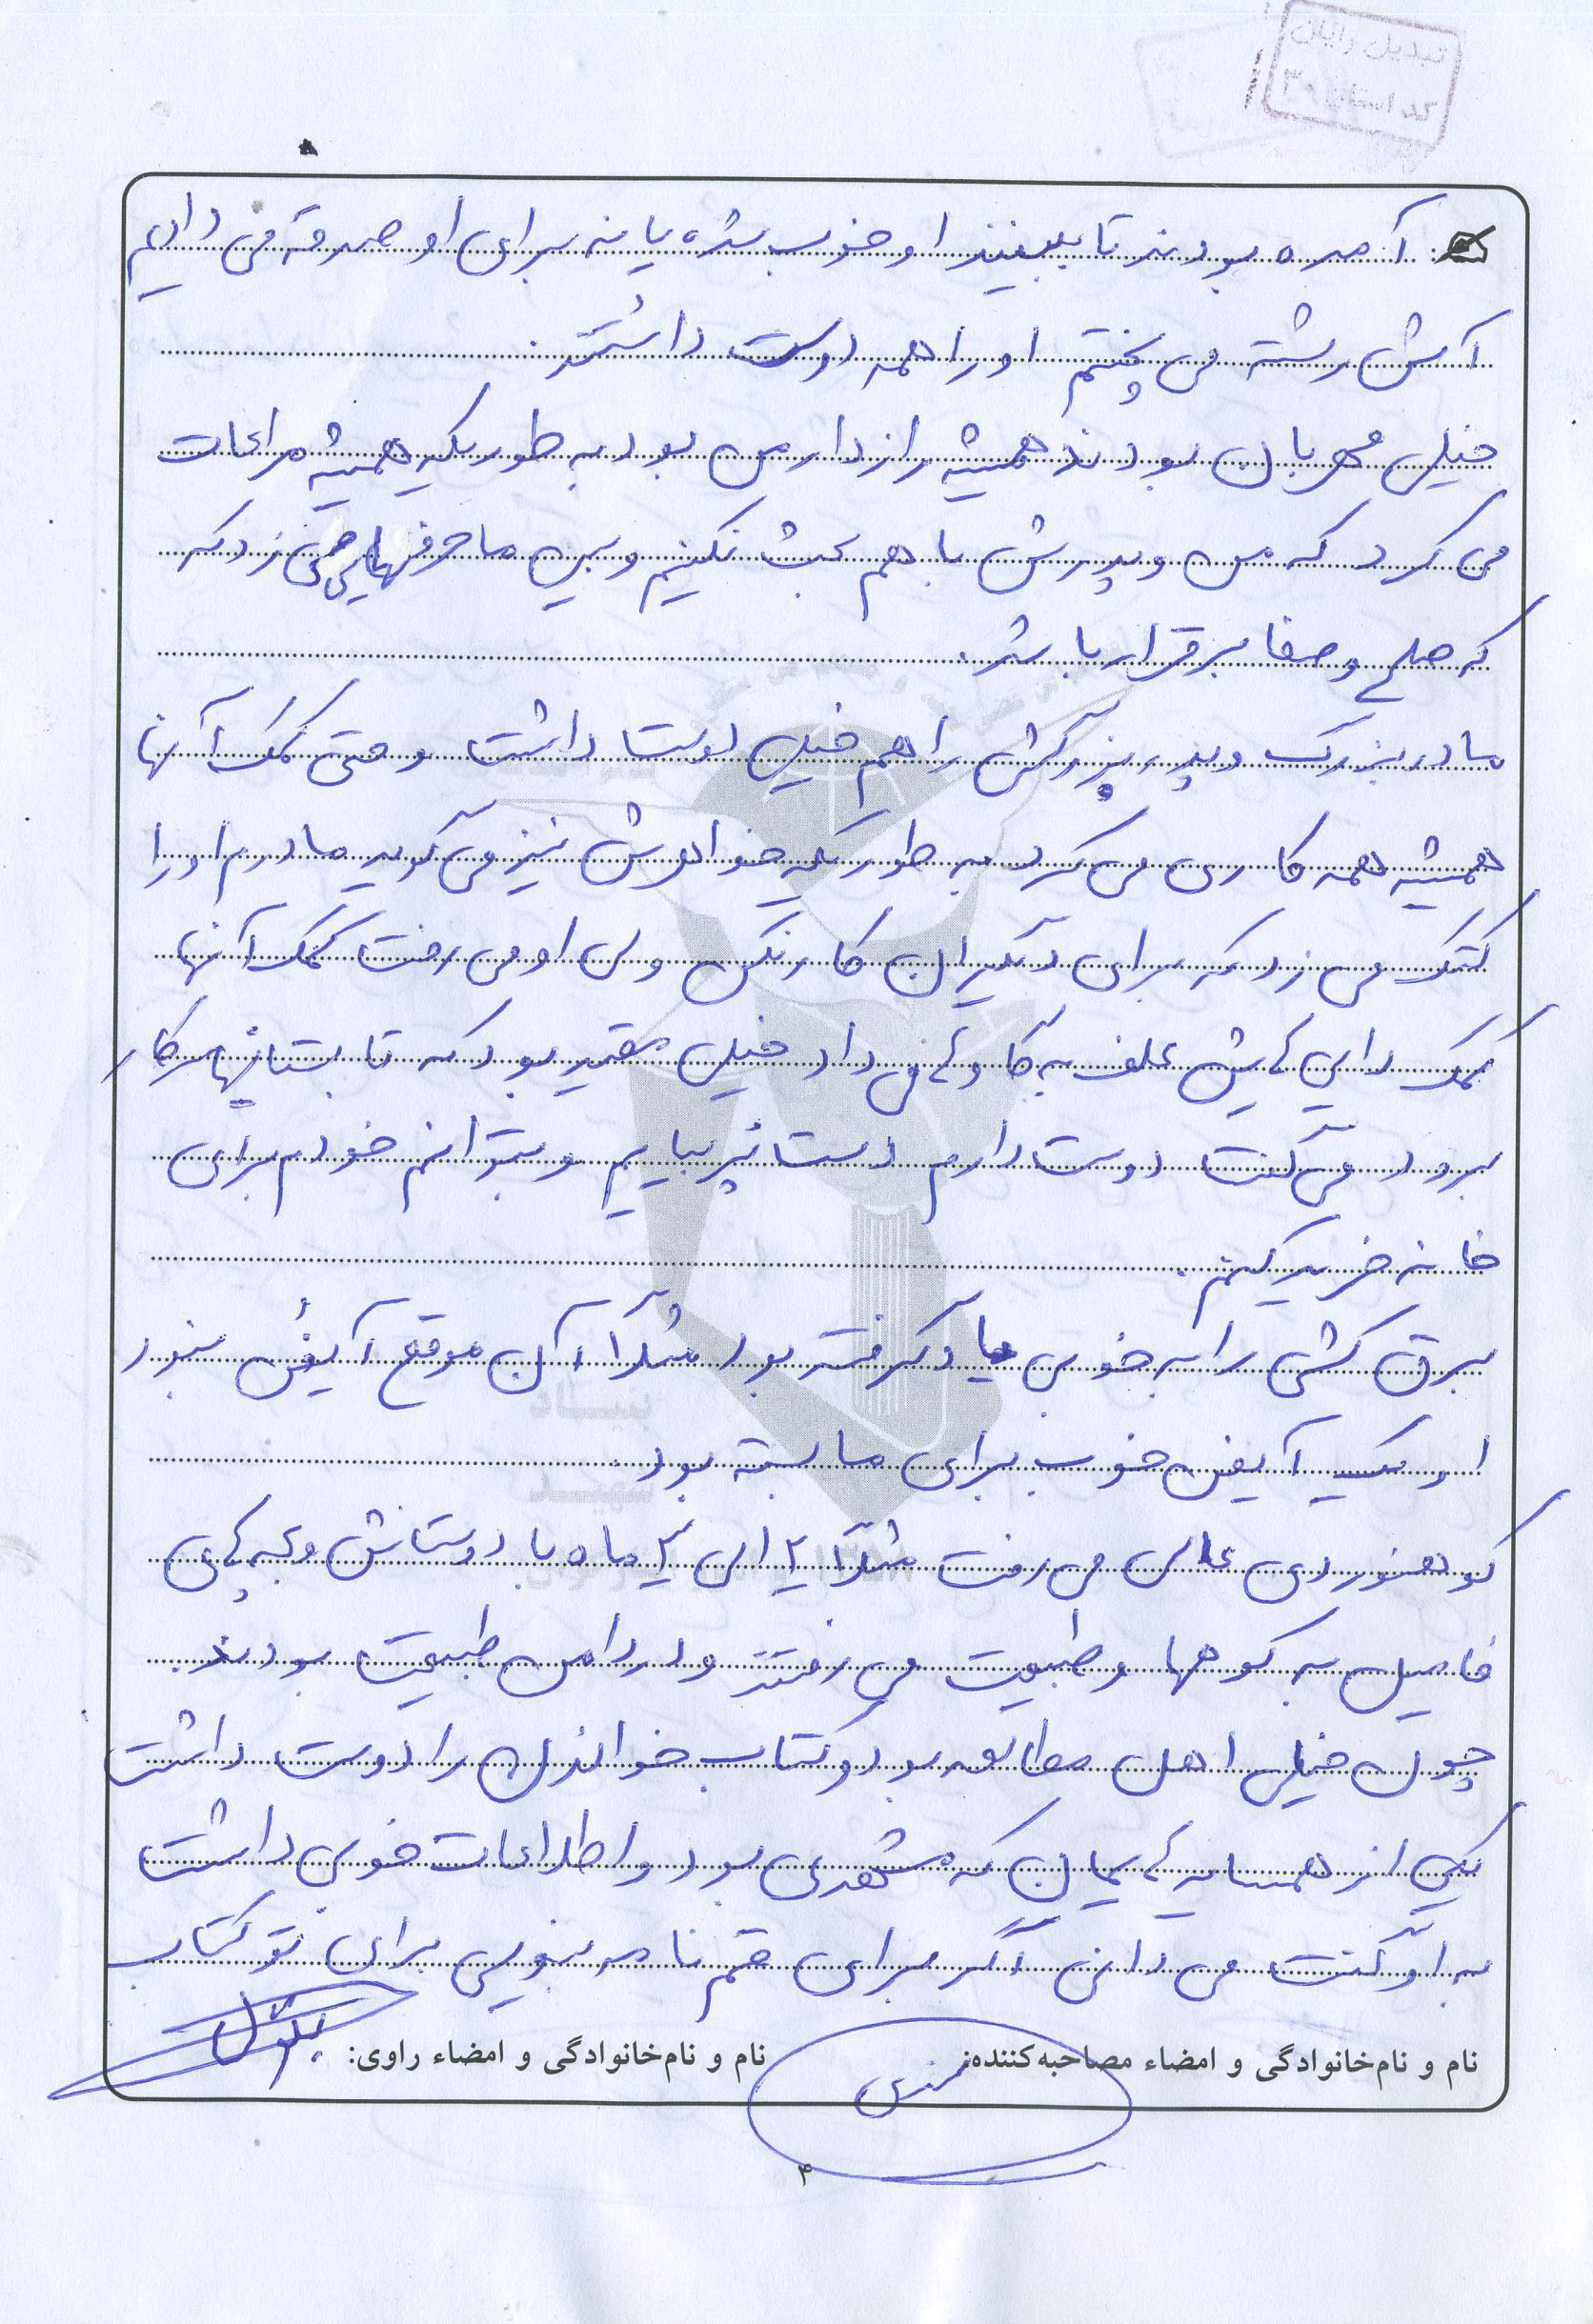 تبدیل رایان
کد استان ۳۰
آمده بودند تا ببینند او خوب شده یا نه برای او صدقه می دادیم
آش رشته می پختم او را همه دوست داشتند.
خیلی مهربان بودند همیشه رازدار من بود به طوریکه همیشه مراعات
می کرد که من و پدرش با هم بحث نکنیم و بین ما حرفهایی می زد که
که صلح و صفا برقرار باشد.
مادربزرگ و پدربزرگش را هم خیلی دوست داشت و حتی کمک آنها
همیشه همه کاری می کرد به طوریکه خواهرش نیز می گوید مادرم او را
کتک می زد که برای دیگران کار نکن ولی او می رفت کمک آنها
کمک دایی هایش علف به گاوها می داد خیلی مقید بود که تابستانها سرکار
برود می گفت دوست دارم دستانم پر بیایم و بتوانم خودم برای
خانه خرید کنم.
برق کشی را به خوبی یاد گرفته بود مثلاً آن موقع آیفن نبود
او یک آیفن خوب برای ما بسته بود.
کوهنوردی عالی می رفت مثلاً ۲ الی ۳ ماه با دوستانش و بچه های
فامیل به کوهها و طبیعت می رفتند و در دامن طبیعت بودند.
چون خیلی اهل مطالعه بود و کتاب خواندن را دوست داشت
یکی از همسایه هایمان که مشهدی بود و اطلاعات خوبی داشت
به او گفت می دانی اگر برای قم نامه بنویسی برای تو کتاب
نام و نام‌خانوادگی و امضاء مصاحبه‌کننده:
نام و نام‌خانوادگی و امضاء راوی:
۴